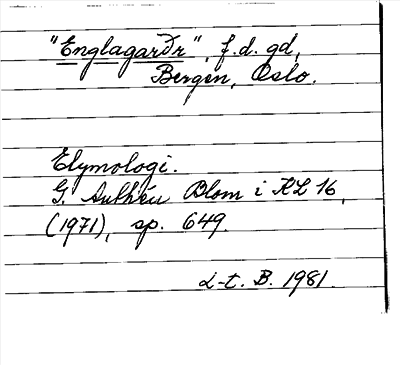 "Englagarðr", f.d. gd,
Bergen, Oslo.
Etymologi.
G. Authén Blom i KL 16,
(1971), sp. 649.
L-t. B. 1981.